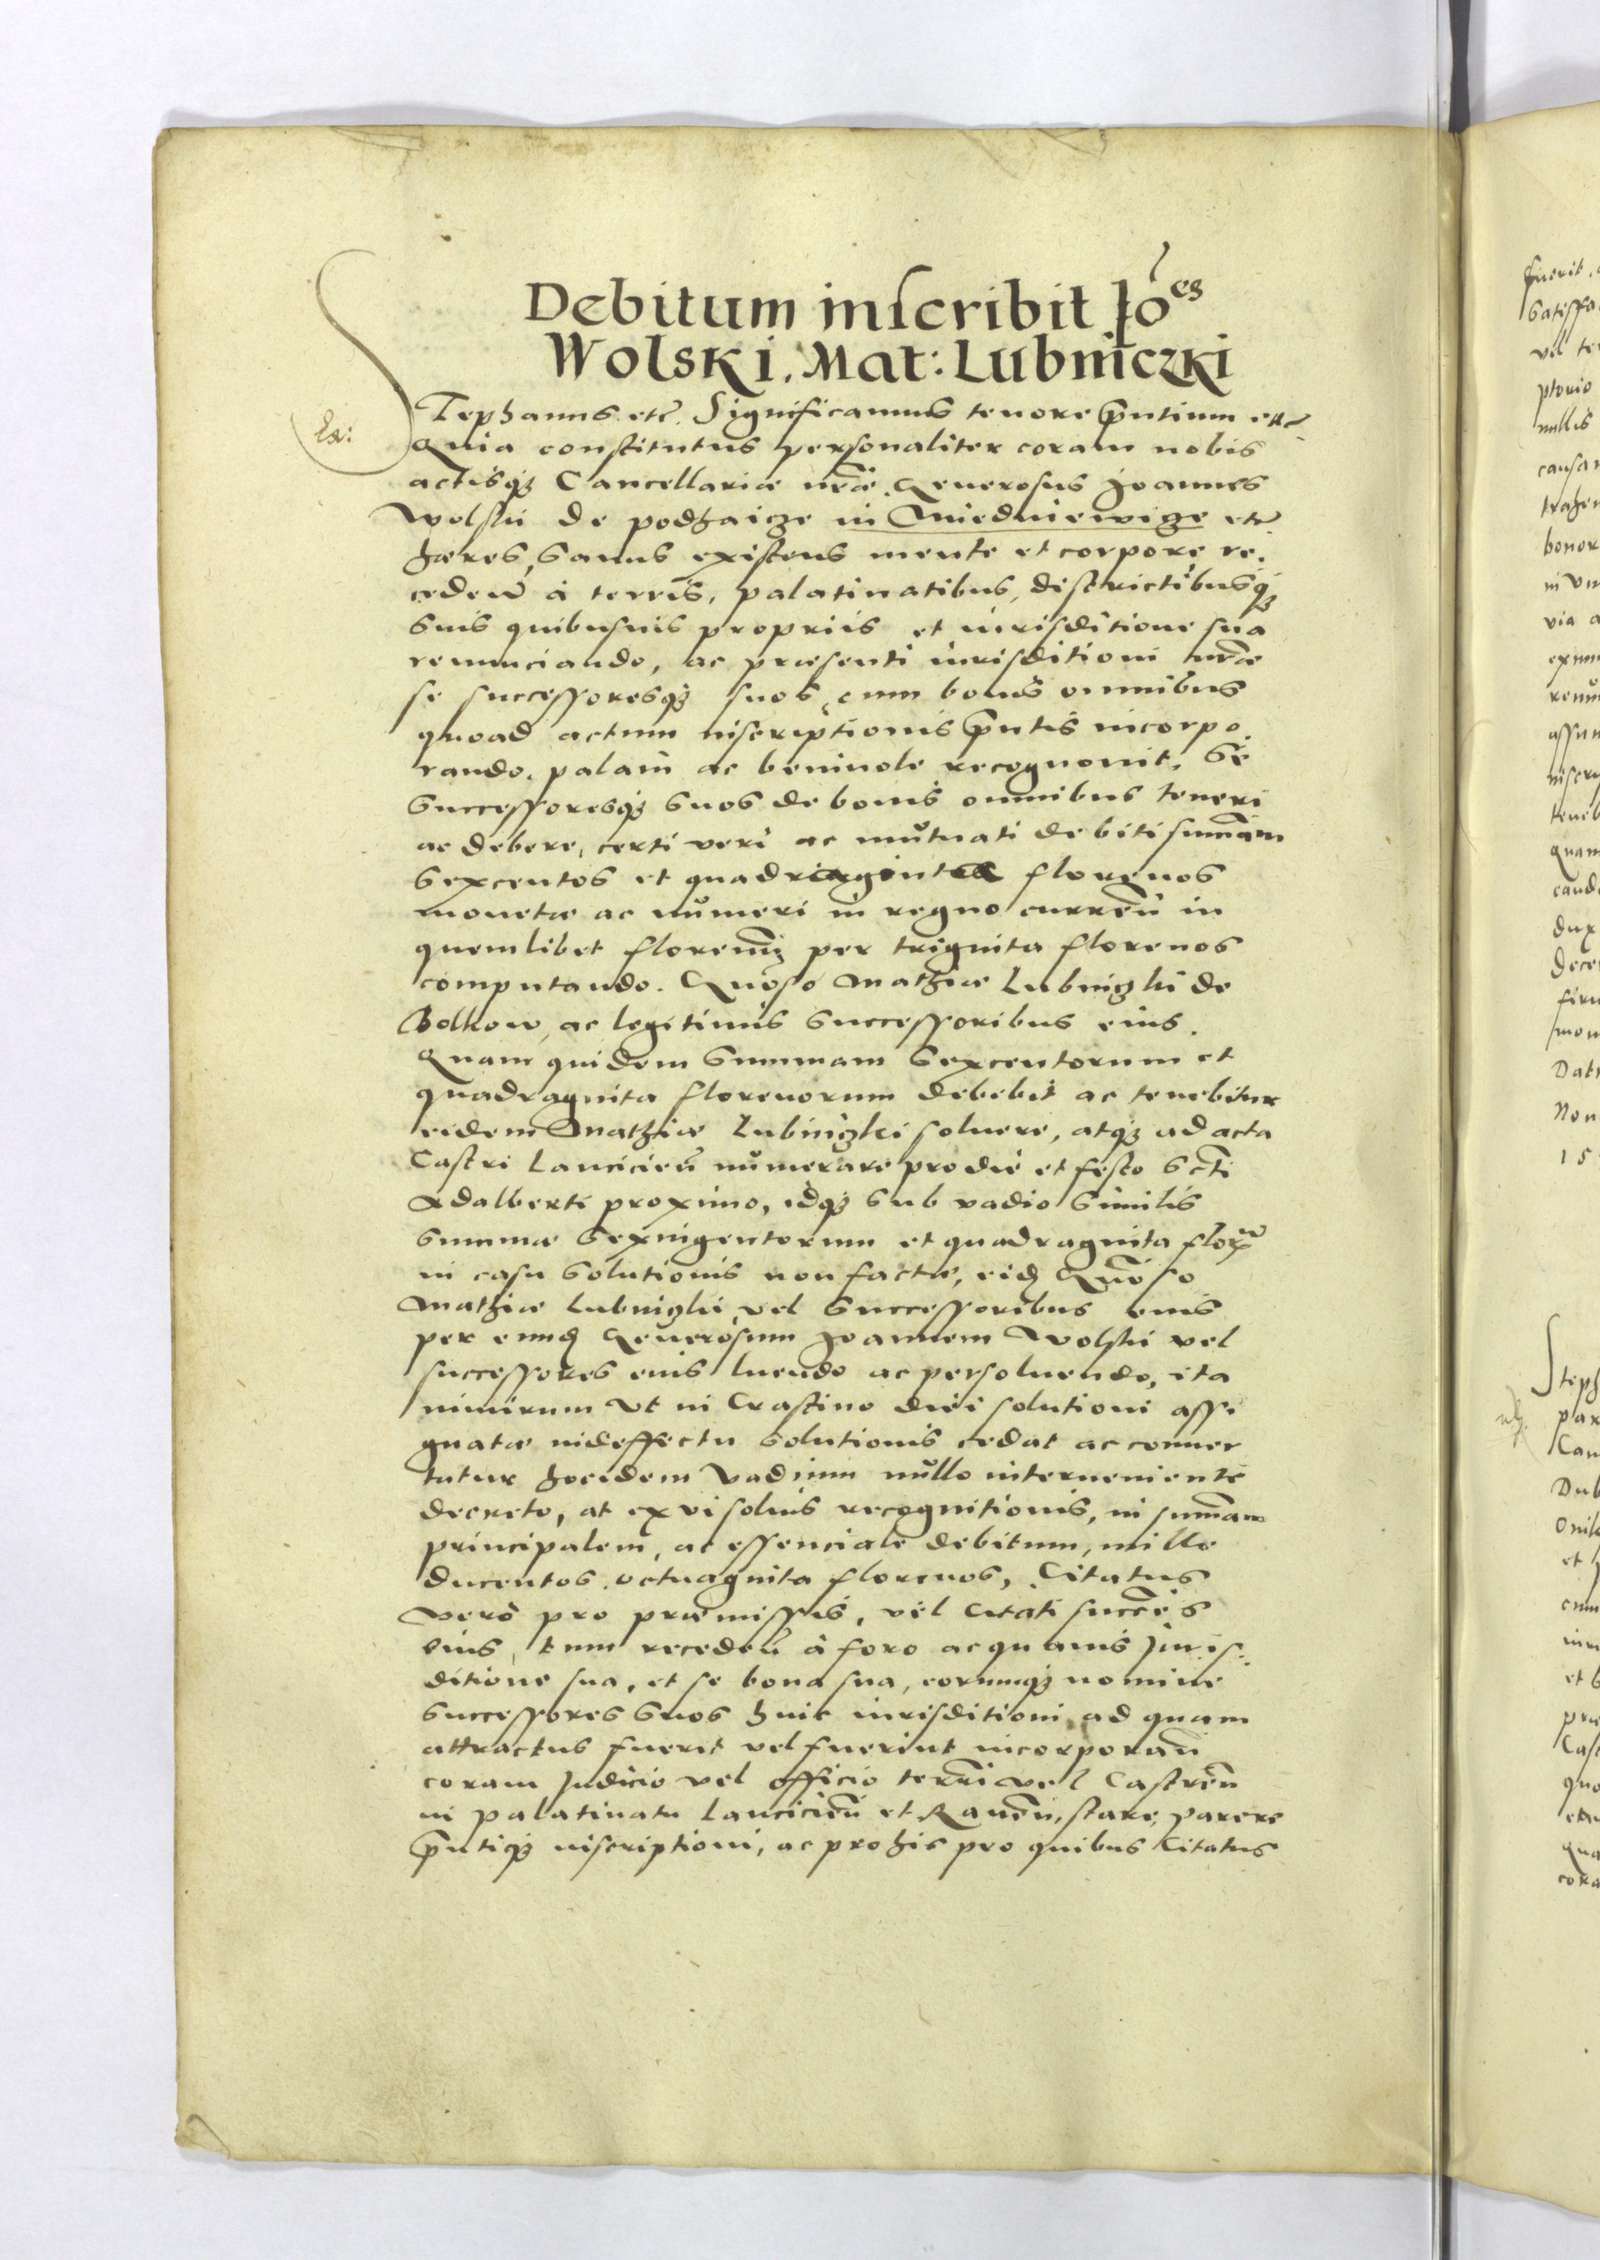 Debitum inscribit Jo͠es
Wolski. Mat: Lubniczki
Ex:
Stephanus etc̃. Significamus tenore p̃ntium etc̃
Quia constitutus personaliter coram nobis
actisq3 Cancellariæ nr̃æ. Generosus Joannes
Wolski de podhaicze in Miedniewicze etc̃
hæres, sanus existens mente et corpore, re-
ceden̄ à terris, palatinatibus, districtibusq3
suis quibusuis propriis et iurisditione sua
renunciando, ac præsenti iurisditioni nr̃æ
se successoresq3 suos, cum bonis omnibus
quoad actum inscriptionis p̃ntis incorpo-
rando, palam ac beniuole recognouit. Se
successoresq3 suos de bonis omnibus teneri
ac debere, certi veri ac mutuati debiti sum̃am
sexcentos et quadraginta florenos
monetæ ac numeri in regno curren̄ in
quemlibet florenu͠ per triginta florenos
computando. Gn͠oso Mathiæ Lubniczki de
Bolkow, ac legitimis successoribus eius.
Quam quidem summam sexcentorum et
quadraginta florenorum debebit ac tenebitur
eidem Mathiæ Lubniczki soluere, atq3 ad acta
Castri Lancicien̄ numerare pro die et festo Sc̃ti
Adalberti proximo, idq3 sub vadio similis
summæ sexingentorum et quadraginta flor͠
in casu solutionis non factæ, eid͠ Gn͠oso
Mathiæ Lubniczki vel successoribus eius
per eund͠ Generosum Joannem Wolski vel
successores eius luendo ac persoluendo, ita
nimirum vt in Crastino diei solutioni assi
gnatæ indeffectu solutionis cedat ac conuer
tatur hocidem vadium nullo interueniente
decreto, at ex vi solius recognitionis, in sum̃am
principalem, ac essenciale debitum, mille
ducentos octuaginta florenos, Citatus
vero pro præmissis, vel Citati succ̃es
eius, tum receden̄ à foro ac quauis Juris-
ditione sua, et se bona sua, eorumq3 nomine
successores suos huic iurisditioni ad quam
attractus fuerit vel fuerint incorporan̄
coram Judicio vel officio terr̃i vel Castren̄
in palatinatu Lancicien̄ et Rauen̄, stare, parere
p̃ntiq3 inscriptioni, ac pro his pro quibus Citatus